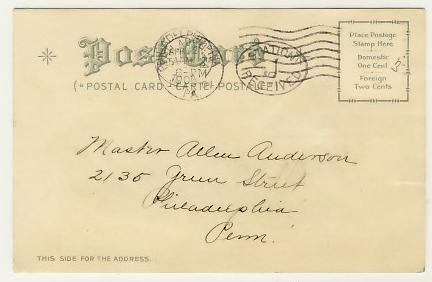 Post Card
("POSTAL CARD-CARTE POSTALE")
Place Postage
Stamp Here
Domestic
One Cent
Foreign
Two Cents
RECEIVED
PA.
Master Allen Anderson
2135 Green Street
Philadelphia
Penn.
THIS SIDE FOR THE ADDRESS.